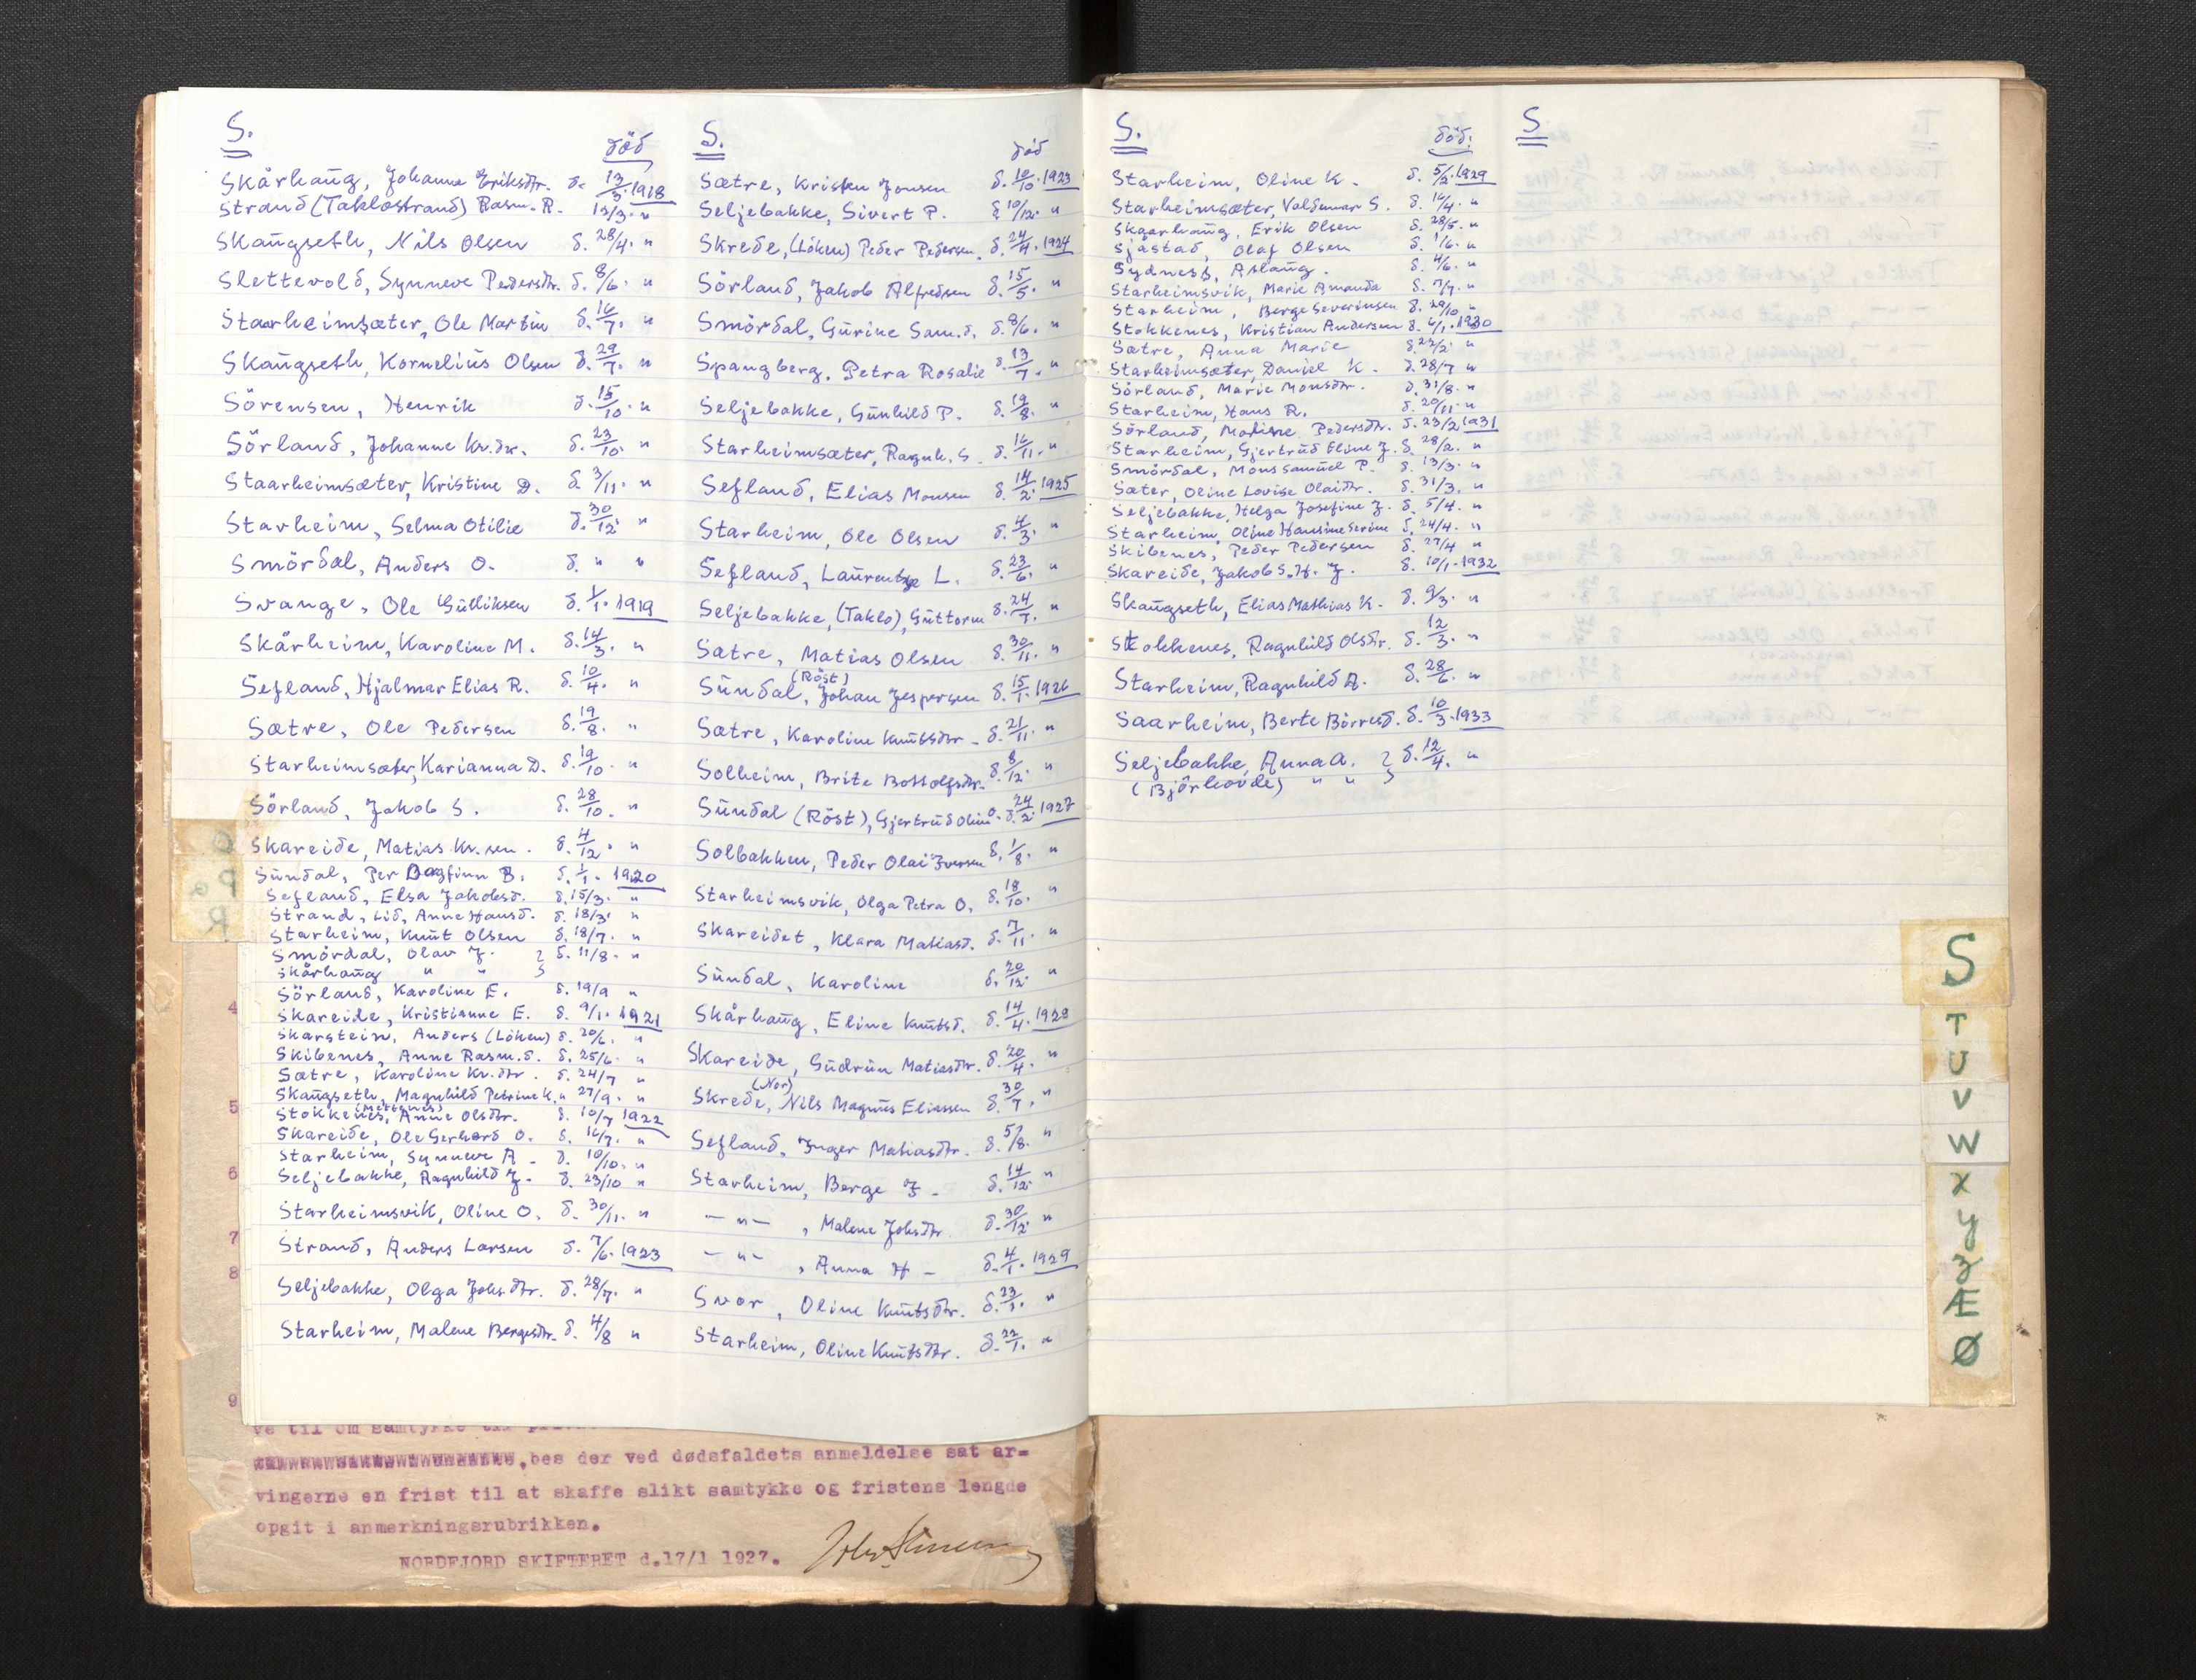 S.
død
Skårhaug, Johanne Eriksdtr. d. 13/3. 1918
Strand (Taklostrand) Rasm. R. 13/3. "
Skaugseth, Nils Olsen d. 28/4. "
Slettevold, Synneve Pedersdtr. d. 8/6. "
Staarheimsæter, Ole Martin d. 16/7. "
Skaugseth, Kornelius Olsen d. 29/7. "
Sörensen, Henrik d. 15/10. "
Sörland, Johanne Kr.dr. d. 23/10. "
Staarheimsæter, Kristine D. d. 3/11. "
Starheim, Selma Otilie d. 30/12. "
Smördal, Anders O. d. " "
Svange, Ole Gulliksen d. 1/1. 1919
Skårheim, Karoline M. d. 14/3. "
Sefland, Hjalmar Elias R. d. 10/4. "
Sætre, Ole Pedersen d. 19/8. "
Starheimsæter, Karianna D. d. 19/10. "
Sörland, Jakob S. d. 28/10. "
Skareide, Matias Kr.sen. d. 4/12. "
Sundal, Per Dagfinn B. d. 1/1. 1920
Sefland, Elsa Jakobsd. d. 15/3. "
Strand, Lid, Anne Hansd. d. 18/3. "
Starheim, Knut Olsen d. 18/7. "
Smördal, Olav J. } d. 11/8. "
Skårhaug " "
Sörland, Karoline E. d. 19/9 "
Skareide, Kristianne E. d. 9/1. 1921
Skarstein, Anders (Löken) d. 20/6. "
Skibenes, Anne Rasm.d. d. 25/6. "
Sætre, Karoline Kr.dtr. d. 24/7 "
Skaugseth, Magnhild Petrine K. " 27/9. "
Stokkenes, Anne Olsdtr. d. 10/7 1922
Skareide, Ole Gerhard O. d. 16/7. "
Starheim, Synneve A. d. 10/10. "
Seljebakke, Ragnhild J. d. 23/10 "
Starheimsvik, Oline O. d. 30/11. "
Strand, Anders Larsen d. 7/6. 1923
Seljebakke, Olga Johs.dtr. d. 28/7. "
Starheim, Malene Bergesdtr. d. 4/8 "
S.
død
Sætre, Kristen Jonsen d. 10/10. 1923
Seljebakke, Sivert P. d. 10/12. "
Skrede, (Löken) Peder Pedersen. d. 24/4. 1924
Sörland, Jakob Alfredsen d. 15/5. "
Smördal, Gurine Sam.d. d. 9/6. "
Spangberg, Petra Rosalie d. 13/7. "
Seljebakke, Gunhild P. d. 19/8. "
Starheimsæter, Ragnh. S. d. 16/11. "
Sefland, Elias Monsen d. 14/2. 1925
Starheim, Ole Olsen d. 4/3. "
Sefland, Laurentze L. d. 23/6. "
Seljebakke, (Taklo), Guttorm d. 24/7. "
Sætre, Matias Olsen d. 30/11. "
(Röst)
Sundal, Johan Jespersen d. 15/1. 1926
Sætre, Karoline Knutsdtr. d. 21/11. "
Solheim, Brite Bottolfsdtr. d. 8/12. "
Sundal (Röst), Gjertrud Oline O. d. 24/2. 1927
Solbakken, Peder Olai Iversen d. 1/8. "
Starheimsvik, Olga Petra O. d. 18/10. "
Skareidet, Klara Matiasd. d. 7/11. "
Sundal, Karoline d. 20/12. "
Skårhaug, Eline Knutsd. d. 14/4. 1928
Skareide, Gudrun Matiasdtr. d. 20/4. "
(Nor)
Skrede, Nils Magnus Eliassen d. 30/7. "
Sefland, Inger Matiasdtr. d. 5/8. "
Starheim, Berge J. d. 14/12. "
— " — , Malene Johsdtr. d. 30/12. "
— " — , Anna H. d. 4/1. 1929
Svor, Oline Knutsdtr. d. 23/1. "
Starheim, Oline Knutsdtr. d. 22/1. "
S.
død.
Starheim, Oline K. d. 5/2. 1929
Starheimsæter, Valdemar S. d. 16/4. "
Skaarhaug, Erik Olsen d. 28/5. "
Sjåstad, Olaf Olsen d. 1/6. "
Sydness, Aslaug. d. 4/6. "
Starheimsvik, Marie Amanda d. 7/7. "
Starheim, Berge Severinsen d. 29/10. "
Stokkenes, Kristian Andersen d. 6/1. 1930
Sætre, Anna Marie d. 22/2. "
Starheimsæter, Daniel K. d. 28/7 "
Sörland, Marie Monsdtr. d. 31/8. "
Starheim, Hans R. d. 20/11. "
Sörland, Matine Pedersdtr. d. 23/2 1931
Starheim, Gjertrud Eline J. d. 28/2. "
Smördal, Mons Samuel P. d. 13/3. "
Sæter, Oline Lovise Olaidtr. d. 31/3. "
Seljebakke, Helga Josefine J. d. 5/4. "
Starheim, Oline Hansine Serine d. 24/4. "
Skibenes, Peder Pedersen d. 27/4 "
Skareide, Jakob S. H. J. d. 10/1. 1932
Skaugseth, Elias Mathias K. d. 9/3. "
Stokkenes, Ragnhild Olsdtr. d. 12/3. "
Starheim, Ragnhild A. d. 28/6. "
Saarheim, Berte Börresd. d. 10/3. 1933
Seljebakke, Anna A. } d. 12/4. "
(Björhovde) " "
S
S
T
U
V
W
X
Y
Z
Æ
Ø
4
5
6
7
8
9
bes der ved dødsfaldets anmeldelse sat ar=
vingerne en frist til at skaffe slikt samtykke og fristens lengde
opgit i anmerkningsrubrikken.
NORDFJORD SKIFTERET d.17/1 1927.